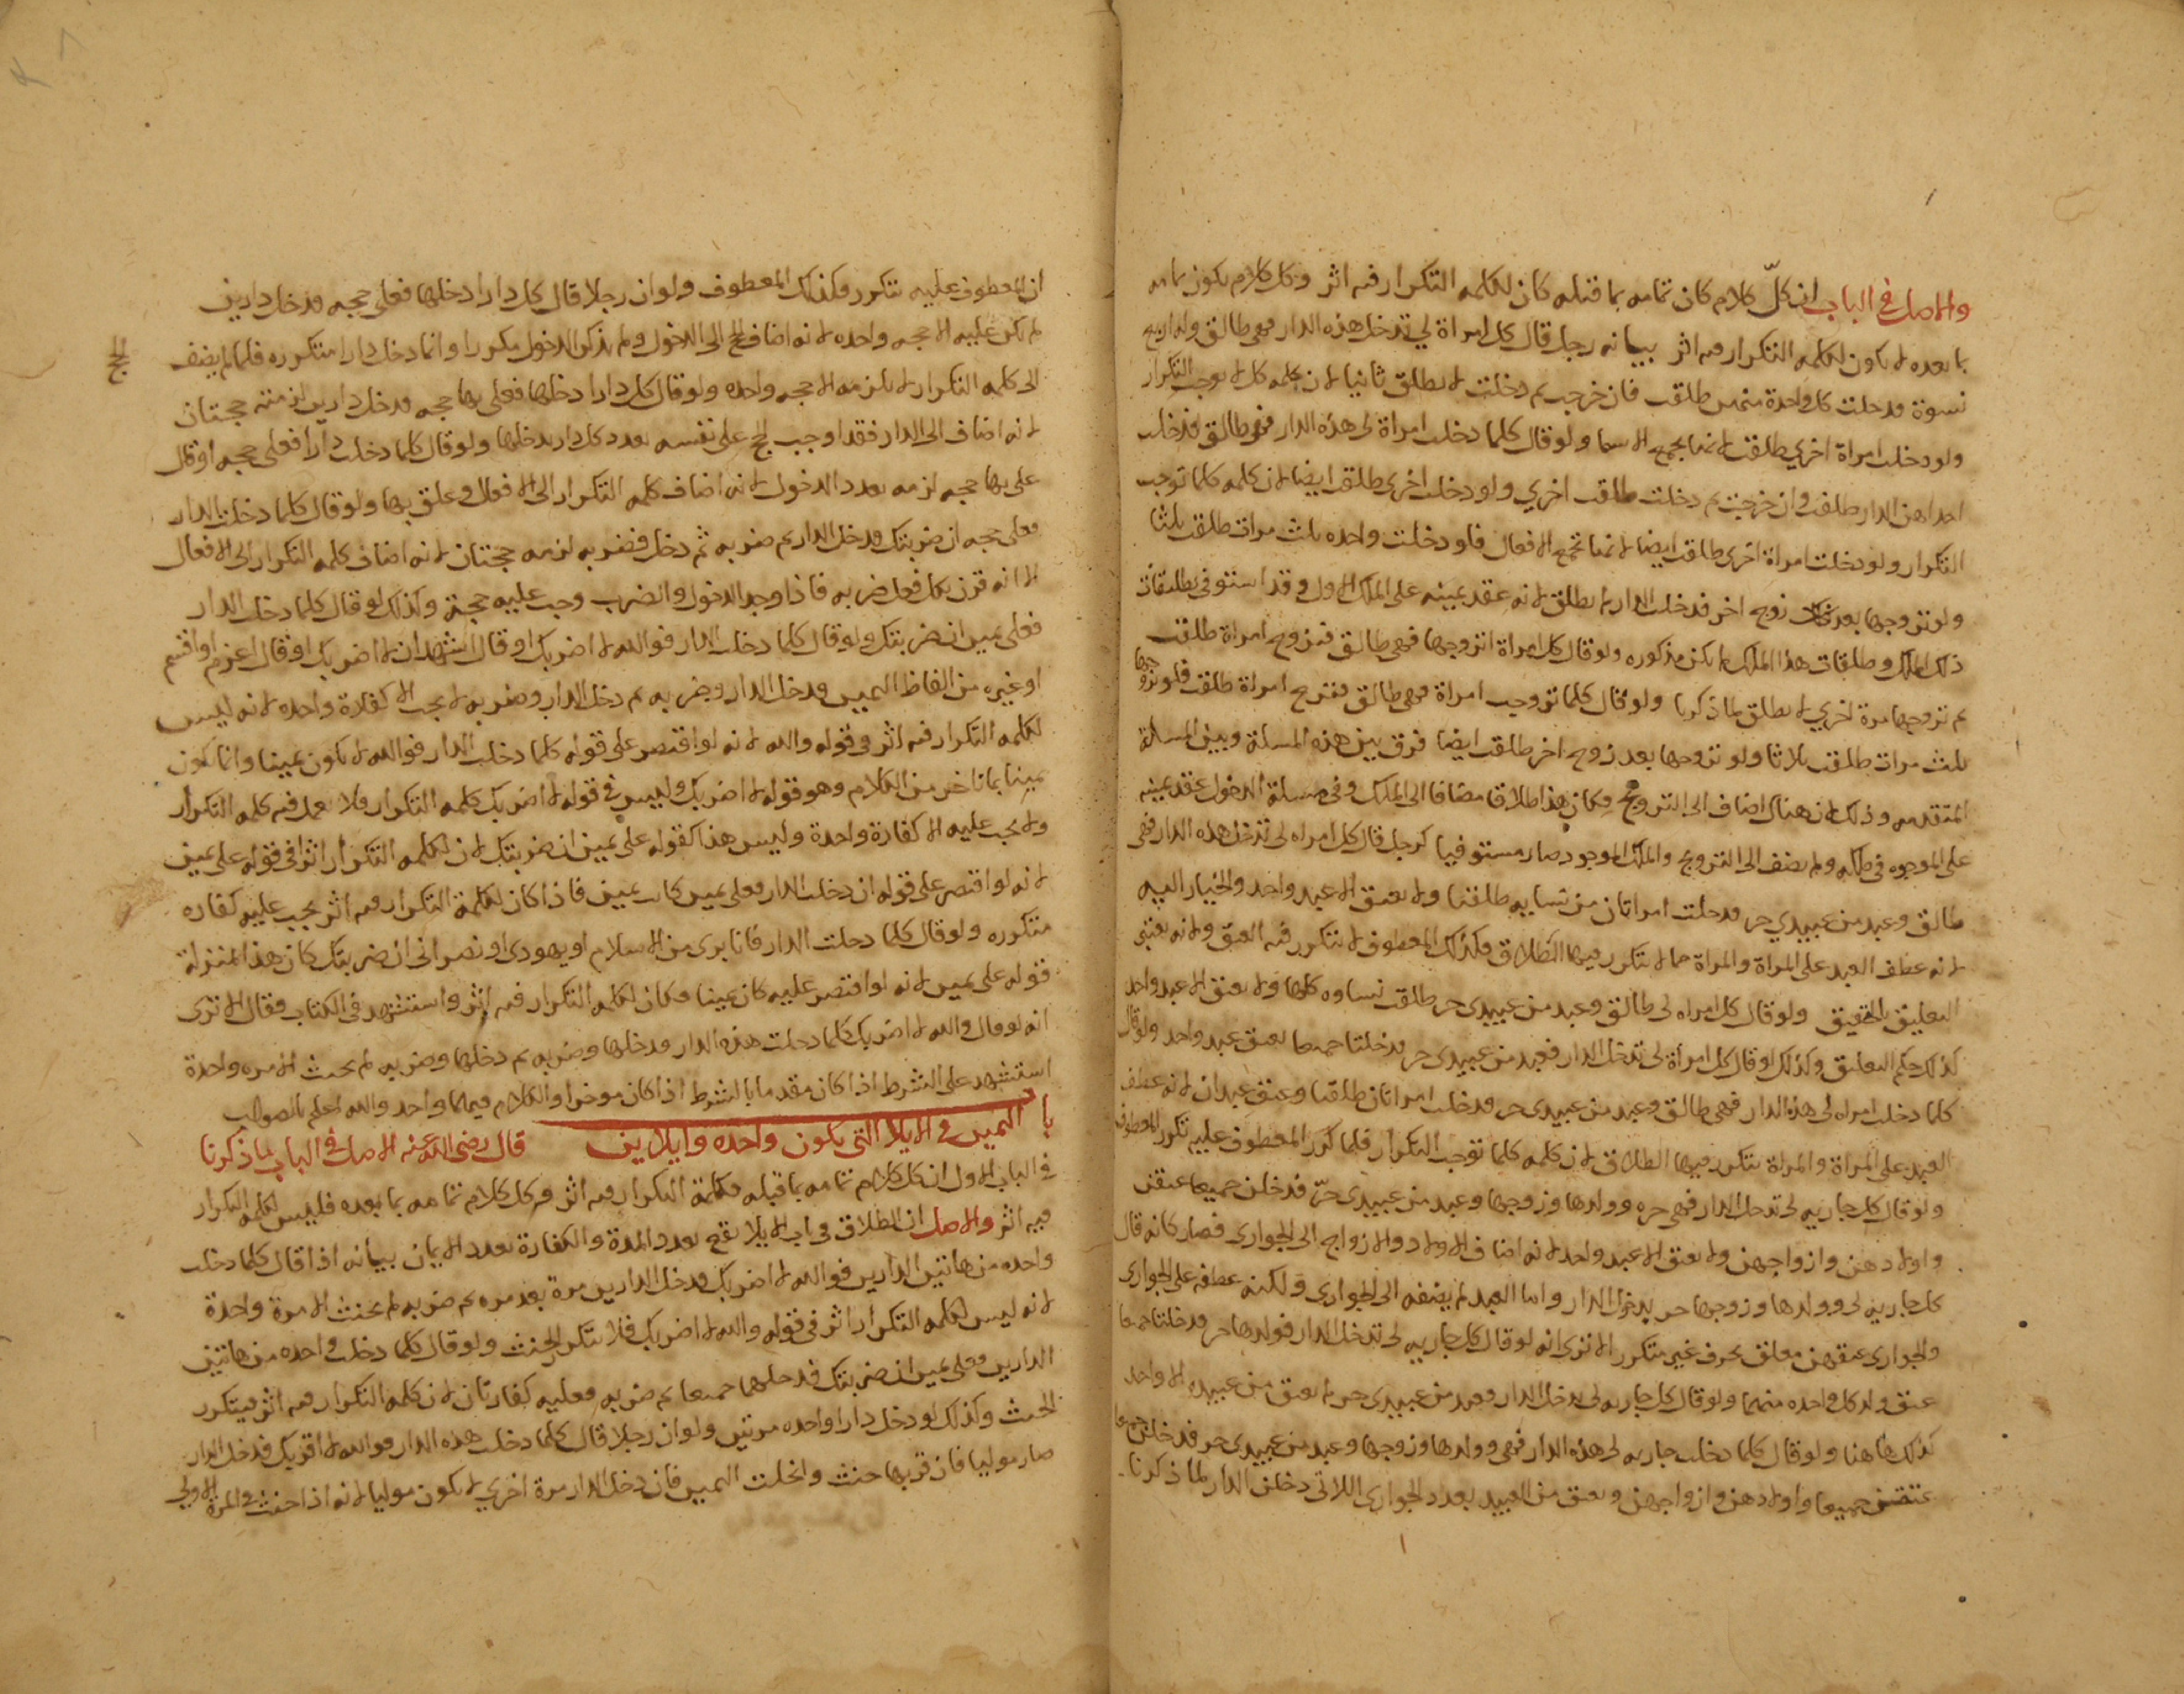 والاصل في الباب ان كلّ كلام كان تمامه بما قبله كان لكلمه التكرار فيه اثر وكل كلام يكون تمامه
بما بعده لا يكون لكلمه التكرار فيه اثر بيانه رجل قال كل امراة لي تدخل هذه الدار فهي طالق وله اربع
نسوة فدخلت كل واحدة منهن طلقت فان خرجت ثم دخلت لا تطلق ثانيا لان كلمه كل لا توجب التكرار
ولو دخلت امراة اخري طلقت لانها تجمع الاسما ولو قال كلما دخلت امراة لي هذه الدار فهي طالق فدخلت
احداهن الدار طلقت وان خرجت ثم دخلت طلقت اخري ولو دخلت اخري طلقت ايضا لان كلمه كلما توجب
التكرار ولو دخلت امراة اخري طلقت ايضا لانها تجمع الافعال فلو دخلت واحده ثلث مرات طلقت ثلثا
ولو تزوجها بعد زوج اخر فدخلت الدار لم تطلق لانه عقد يمينه على الملك الاول وقد استوفى تطليقات
ذلك الملك وطلقات هذا الملك لم يكن مذكوره ولو قال كل امراة اتزوجها فهي طالق فتزوج امراة طلقت
ثم تزوجها مرة اخري لا تطلق لما ذكرنا ولو قال كلما تزوجت امراة فهي طالق فتزوج امراة طلقت فلو تزوجها
ثلث مرات طلقت ثلاثا ولو تزوجها بعد زوج اخر طلقت ايضا فرق بين هذه المسلة وبين المسلة
المتقدمه وذلك لان هناك اضاف الى التزويج فكان هذا طلاقا مضافا الى الملك وفي مسلة الدخول عقد يمينه
على الموجوده في ملكه ولم يضف الى التزويج والملك الموجود صار مستوفيا كرجل قال كل امراه لي تدخل هذه الدار فهي
طالق وعبد من عبيدي حر فدخلت امراتان من نسايه طلقتا ولا يعتق الا عبد واحد والخيار اليه
لانه عطف العبد على المراة والمراة مما لا يتكرر فيها الطلاق فكذلك المعطوف لا يتكرر فيه العتق ولانه يعني
التعليق بالتحقيق ولو قال كل امراه لي طالق وعبد من عبيدي حر طلقت نساوه كلها ولا يعتق الا عبد واحد
كذلك حكم التعليق وكذلك لو قال كل امراة لي تدخل الدار فعبد من عبيدي حر فدخلتا جميعا يعتق عبد واحد ولو قال
كلما دخلت امراه لي هذه الدار فهي طالق وعبد من عبيدي حر فدخلت امراتان طلقتا وعتق عبدان لانه عطف
العبد على المراة والمراة يتكرر فيها الطلاق لان كلمه كلما توجب التكرار فلما تكرر المعطوف عليه تكرر المعطوف
ولو قال كل جاريه لي تدخل الدار فهي حره وولدها وزوجها وعبد من عبيدي حرّ فدخلن جميعا عتقن
واولادهن وازواجهن ولا يعتق الا عبد واحد لانه اضاف الاولاد والازواج الى الجواري فصار كانه قال
كل جاريه لي وولدها وزوجها حر بدخول الدار واما العبد لم يضفه الى الجواري ولكنه عطفه على الجواري
والجواري عتقهن معلق بحرف غير متكرر الا ترى انه لو قال كل جاريه لي تدخل الدار فولدها حر فدخلتا جميعا
عتق ولد كل واحده منهما ولو قال كل جاريه لي تدخل الدار فعبد من عبيدي حر لم يعتق من عبيده الا واحد
كذلك هاهنا ولو قال كلما دخلت جاريه لي هذه الدار فهي وولدها وزوجها وعبد من عبيدي حر فدخلن جميعا
عتقن جميعا واولادهن وازواجهن ويعتق من العبيد بعدد الجواري اللاتي دخلن الدار لما ذكرنا
ان المعطوف عليه يتكرر فكذلك المعطوف ولو ان رجلا قال كل دار ادخلها فعلي حجه فدخل دارين
لم يكن عليه الا حجه واحده لانه اضاف الحج الى الدخول ولم يذكر الدخول مكررا وانما دخل دارا متكرره فلما لم يضف
الحج
الى كلمه التكرار لا يلزمه الا حجه واحده ولو قال كل دار ادخلها فعلي بها حجه فدخل دارين لزمته حجتان
لانه اضاف الى الدار فقد اوجب الحج على نفسه بعدد كل دار يدخلها ولو قال كلما دخلت دارا فعلي حجه او قال
علي بها حجه لزمه بعدد الدخول لانه اضاف كلمه التكرار الى الافعال وعلق بها ولو قال كلما دخلت الدار
فعلي حجه ان ضربتك فدخل الدار ثم ضربه ثم دخل فضربه لزمه حجتان لانه اضاف كلمه التكرار الى الافعال
الا انه قرن بكل فعل ضربه فاذا وجد الدخول والضرب وجب عليه حجة وكذلك لو قال كلما دخلت الدار
فعلي يمين ان ضربتك ولو قال كلما دخلت الدار فوالله لا اضربك او قال اشهد ان لا اضربك او قال اعزم او اقسم
او غيره من الفاظ اليمين فدخل الدار وضربه ثم دخل الدار وضربه لا يجب الا كفارة واحده لانه ليس
لكلمه التكرار فيه اثر في قوله والله لانه لو اقتصر على قوله كلما دخلت الدار فوالله لا يكون يمينا وانما يكون
يمينا بما تاخر من الكلام وهو قوله لا اضربك وليس في قوله لا اضربك كلمه التكرار فلا يعمل فيه كلمه التكرار
ولا يجب عليه الا كفارة واحدة وليس هذا كقوله علي يمين ان ضربتك لان لكلمه التكرار اثرا في قوله علي يمين
لانه لو اقتصر على قوله ان دخلت الدار فعلي يمين كانت يمين فاذا كان لكلمة التكرار فيه اثر يجب عليه كفاره
متكرره ولو قال كلما دخلت الدار فانا بري من الاسلام او يهودي او نصراني ان ضربتك كان هذا بمنزلة
قوله علي يمين لانه لو اقتصر عليه كان يمينا فكان لكلمه التكرار فيه اثر واستشهد في الكتاب فقال الا ترى
انه لو قال والله لا اضربك كلما دخلت هذه الدار فدخلها وضربه ثم دخلها وضربه لم يحنث الا مره واحدة
استشهد على الشرط اذا كان مقدما بالشرط اذا كان موخرا والكلام فيهما واحد والله اعلم بالصواب
باب اليمين في الايلا التي يكون واحده وايلاين قال رضي الله عنه الاصل في الباب لما ذكرنا
في الباب الاول ان كل كلام تمامه بما قبله فلكلمة التكرار فيه اثر وكل كلام تمامه بما بعده فليس لكلمه التكرار
فيه اثر والاصل ان الطلاق في باب الايلا يقع بعدد المدة والكفارة بعدد الايمان بيانه اذا قال كلما دخلت
واحده من هاتين الدارين فوالله لا اضربك فدخل الدارين مرة بعد مره ثم ضربه لم يحنث الا مرة واحدة
لانه ليس لكلمه التكرار اثر في قوله والله لا اضربك فلا يتكرر الحنث ولو قال كلما دخلت واحده من هاتين
الدارين فعلي يمين ان ضربتك فدخلهما جميعا ثم ضربه فعليه كفارتان لان كلمه التكرار فيه اثر فيتكرر
الحنث وكذلك لو دخل دارا واحده مرتين ولو ان رجلا قال كلما دخلت هذه الدار فوالله لا اقربك فدخل الدار
صار موليا فان قربها حنث وانحلت اليمين فان دخل الدار مرة اخري لا يكون موليا لانه اذا حنث في المرة الاولى